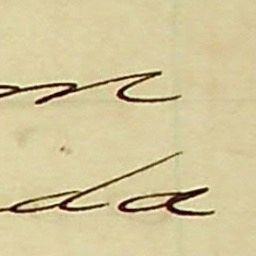 m
da